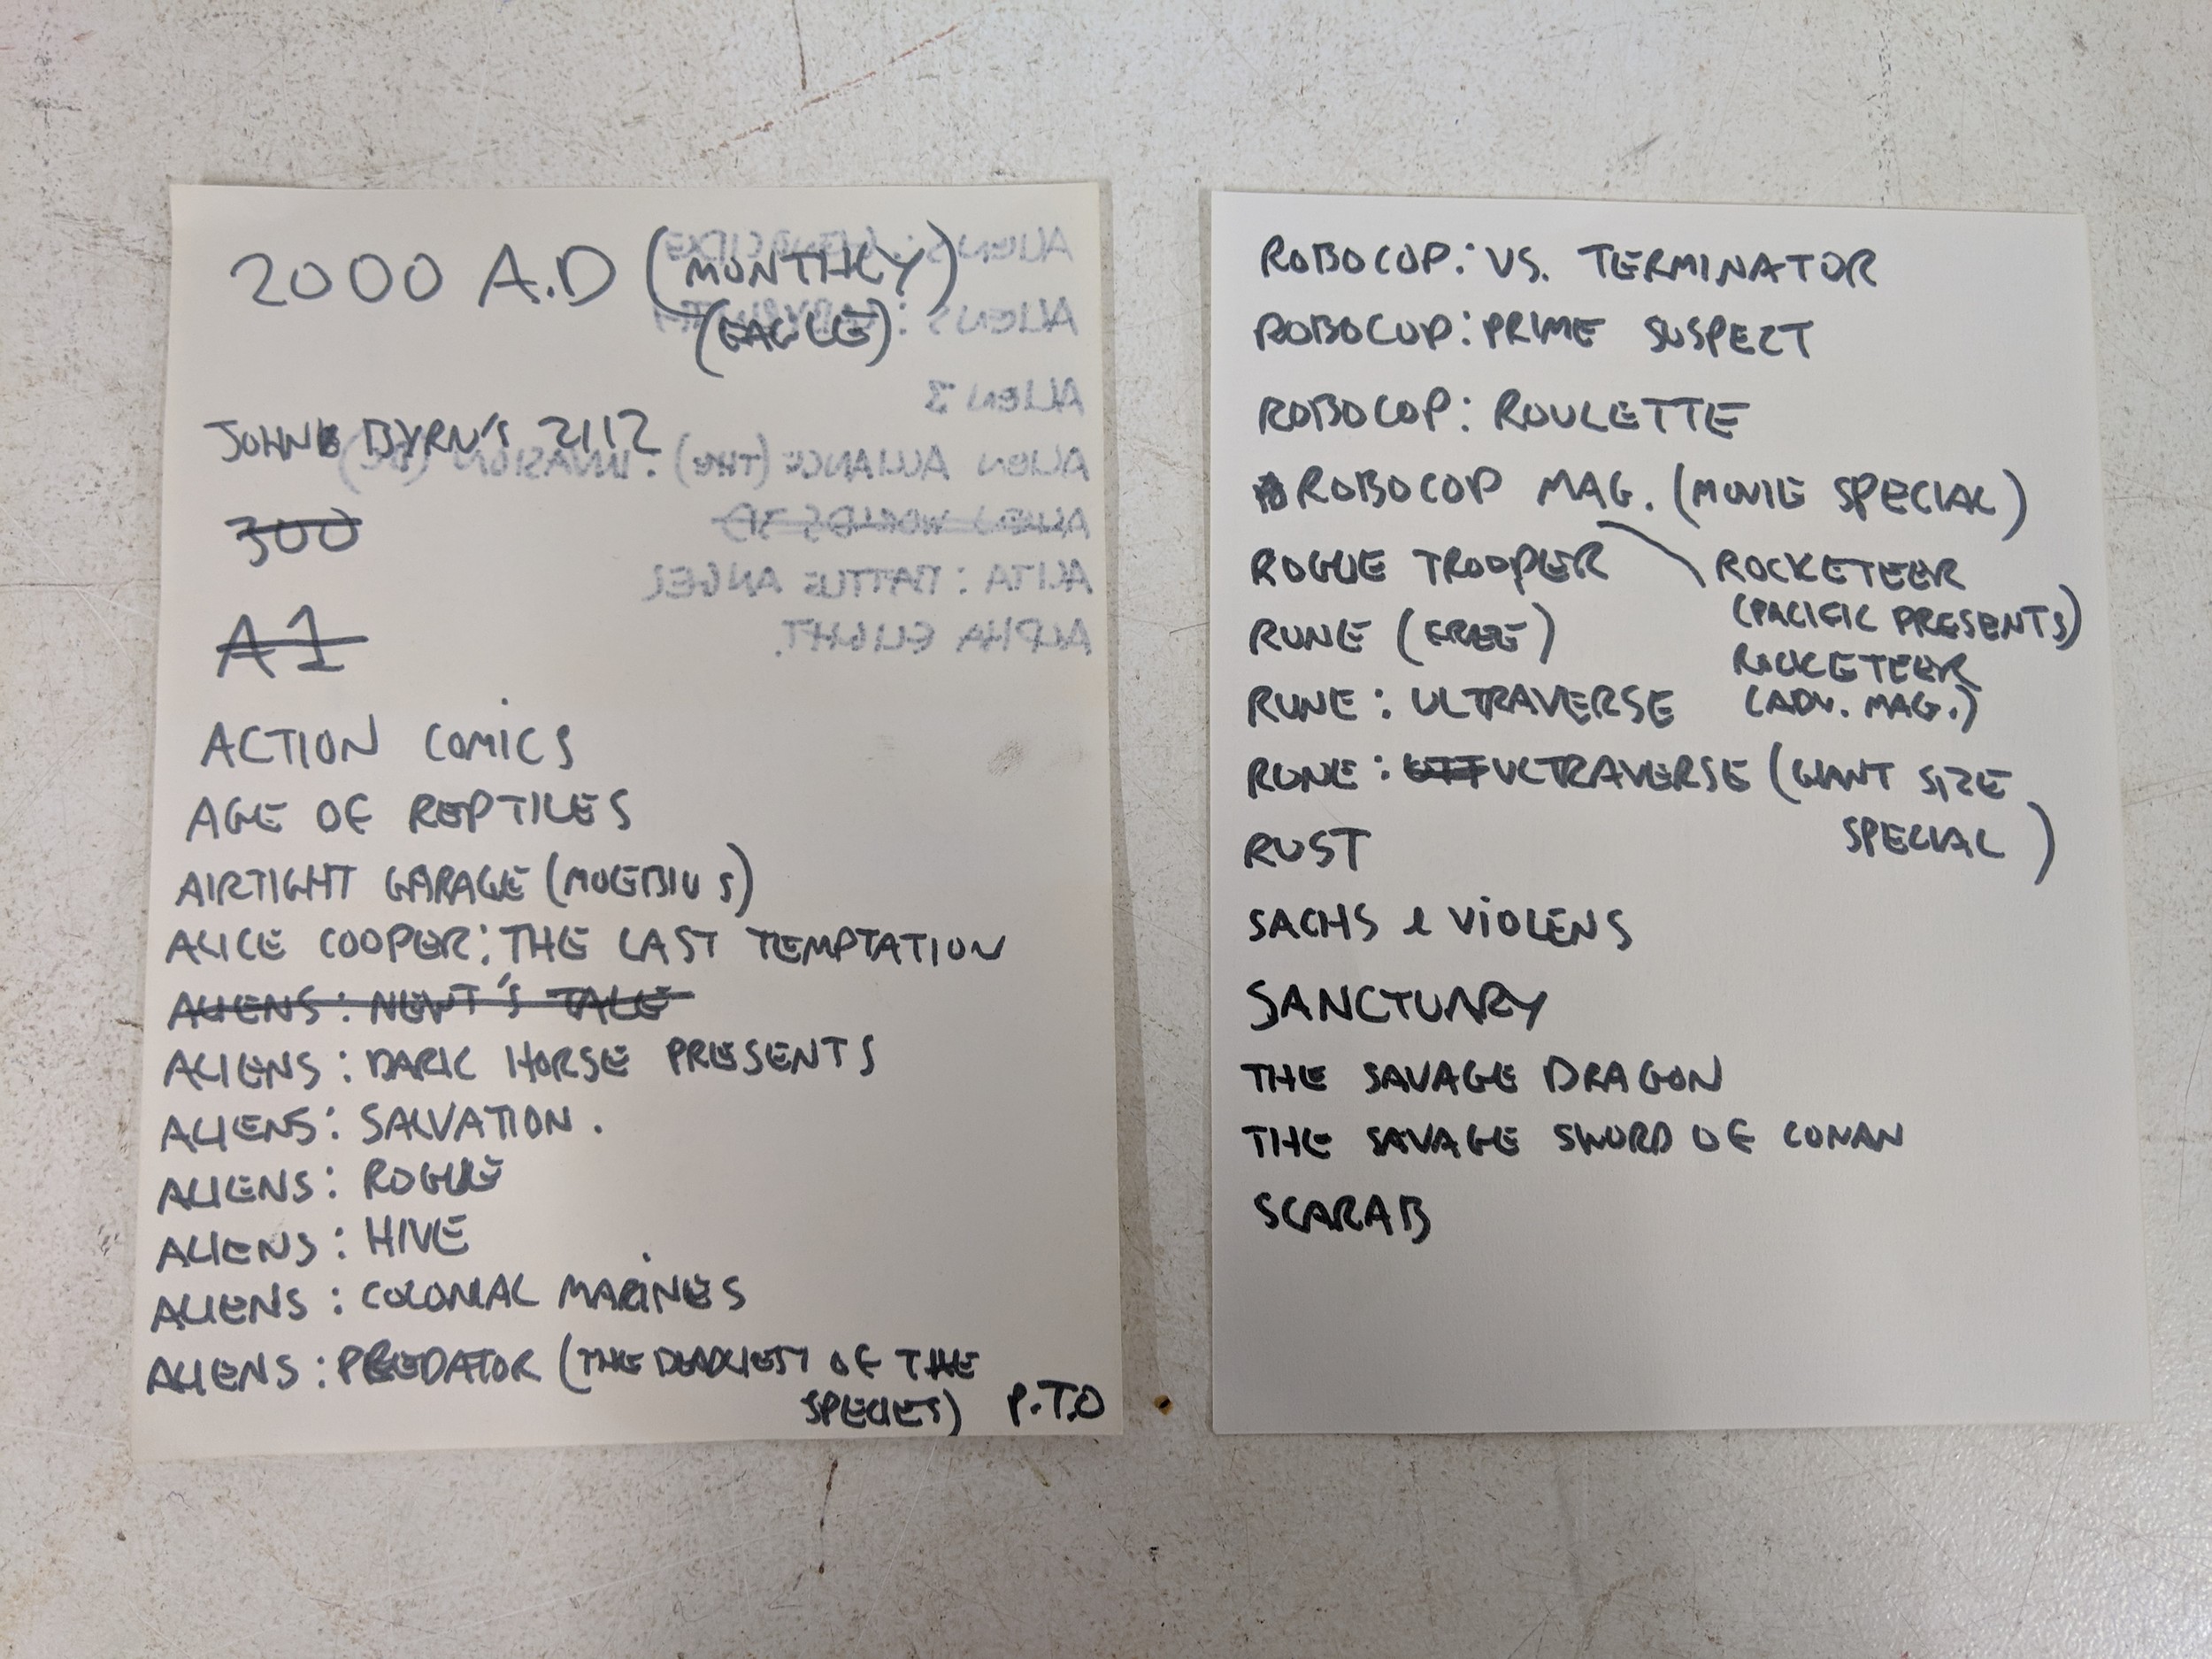 2000 A.D (MONTHLY)
(EAGLE)
JOHN BYRN'S 2112
300
A1
ACTION COMICS
AGE OF REPTILES
AIRTIGHT GARAGE (MOEBIUS)
ALICE COOPER: THE LAST TEMPTATION
ALIENS: NEWT'S TALE
ALIENS: DARK HORSE PRESENTS
ALIENS: SALVATION.
ALIENS: ROGUE
ALIENS: HIVE
ALIENS: COLONIAL MARINES
ALIENS: PREDATOR (THE DEADLIEST OF THE
SPECIES) P.T.O
ALIENS:
ALIENS:
ALIEN 3
ALIEN ALLIANCE (THE): INVASION
ALIEN WORLDS 3D
ALITA: BATTLE ANGEL
ALPHA FLIGHT.
ROBOCOP: VS. TERMINATOR
ROBOCOP: PRIME SUSPECT
ROBOCOP: ROULETTE
ROBOCOP MAG. (MOVIE SPECIAL)
ROGUE TROOPER
ROCKETEER
(PACIFIC PRESENTS)
ROCKETEER
(ADV. MAG.)
RUNE (FREE)
RUNE: ULTRAVERSE
RUNE: ULTRAVERSE (GIANT SIZE
SPECIAL)
RUST
SACHS & VIOLENS
SANCTUARY
THE SAVAGE DRAGON
THE SAVAGE SWORD OF CONAN
SCARAB